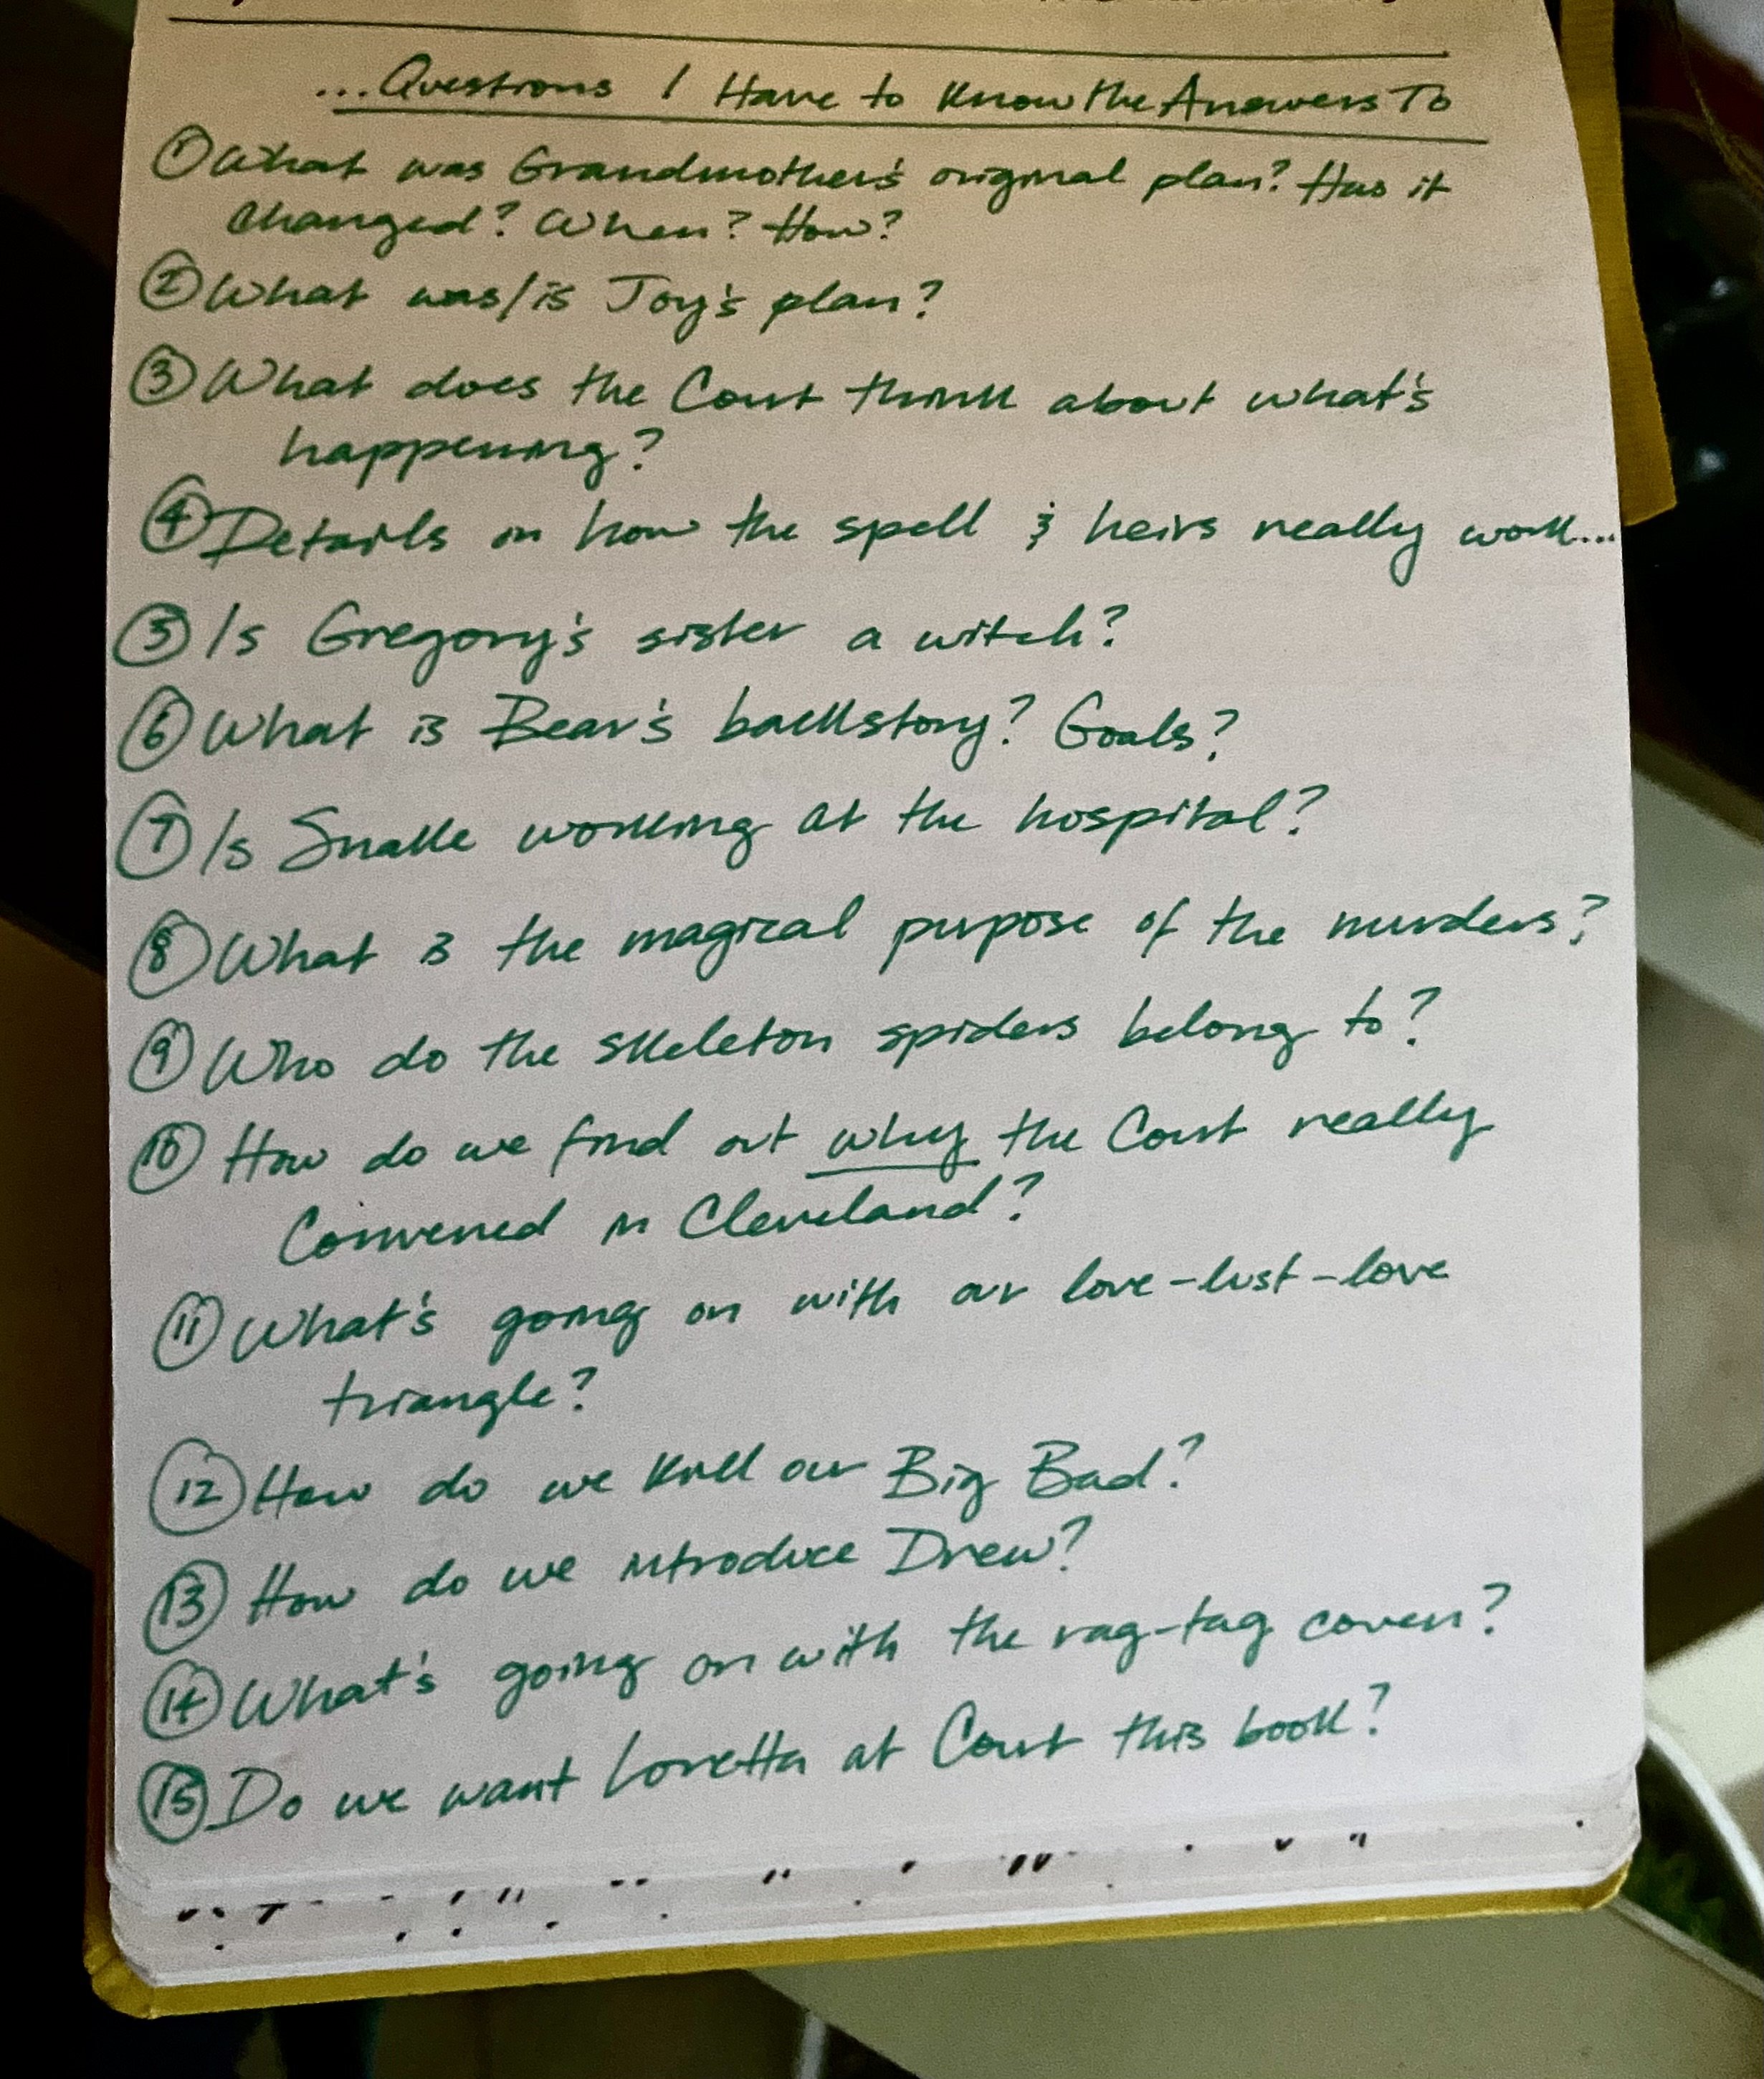 ...Questions I Have to Know the Answers To
① What was Grandmother's original plan? Has it
changed? When? How?
② What was/is Joy's plan?
③ What does the Court think about what's
happening?
④ Details on how the spell & heirs really work...
⑤ Is Gregory's sister a witch?
⑥ What is Bear's backstory? Goals?
⑦ Is Snake working at the hospital?
⑧ What is the magical purpose of the murders?
⑨ Who do the skeleton spiders belong to?
⑩ How do we find out why the Court really
Convened in Cleveland?
⑪ What's going on with our love-lust-love
triangle?
⑫ How do we kill our Big Bad?
⑬ How do we introduce Drew?
⑭ What's going on with the rag-tag coven?
⑮ Do we want Loretta at Court this book?